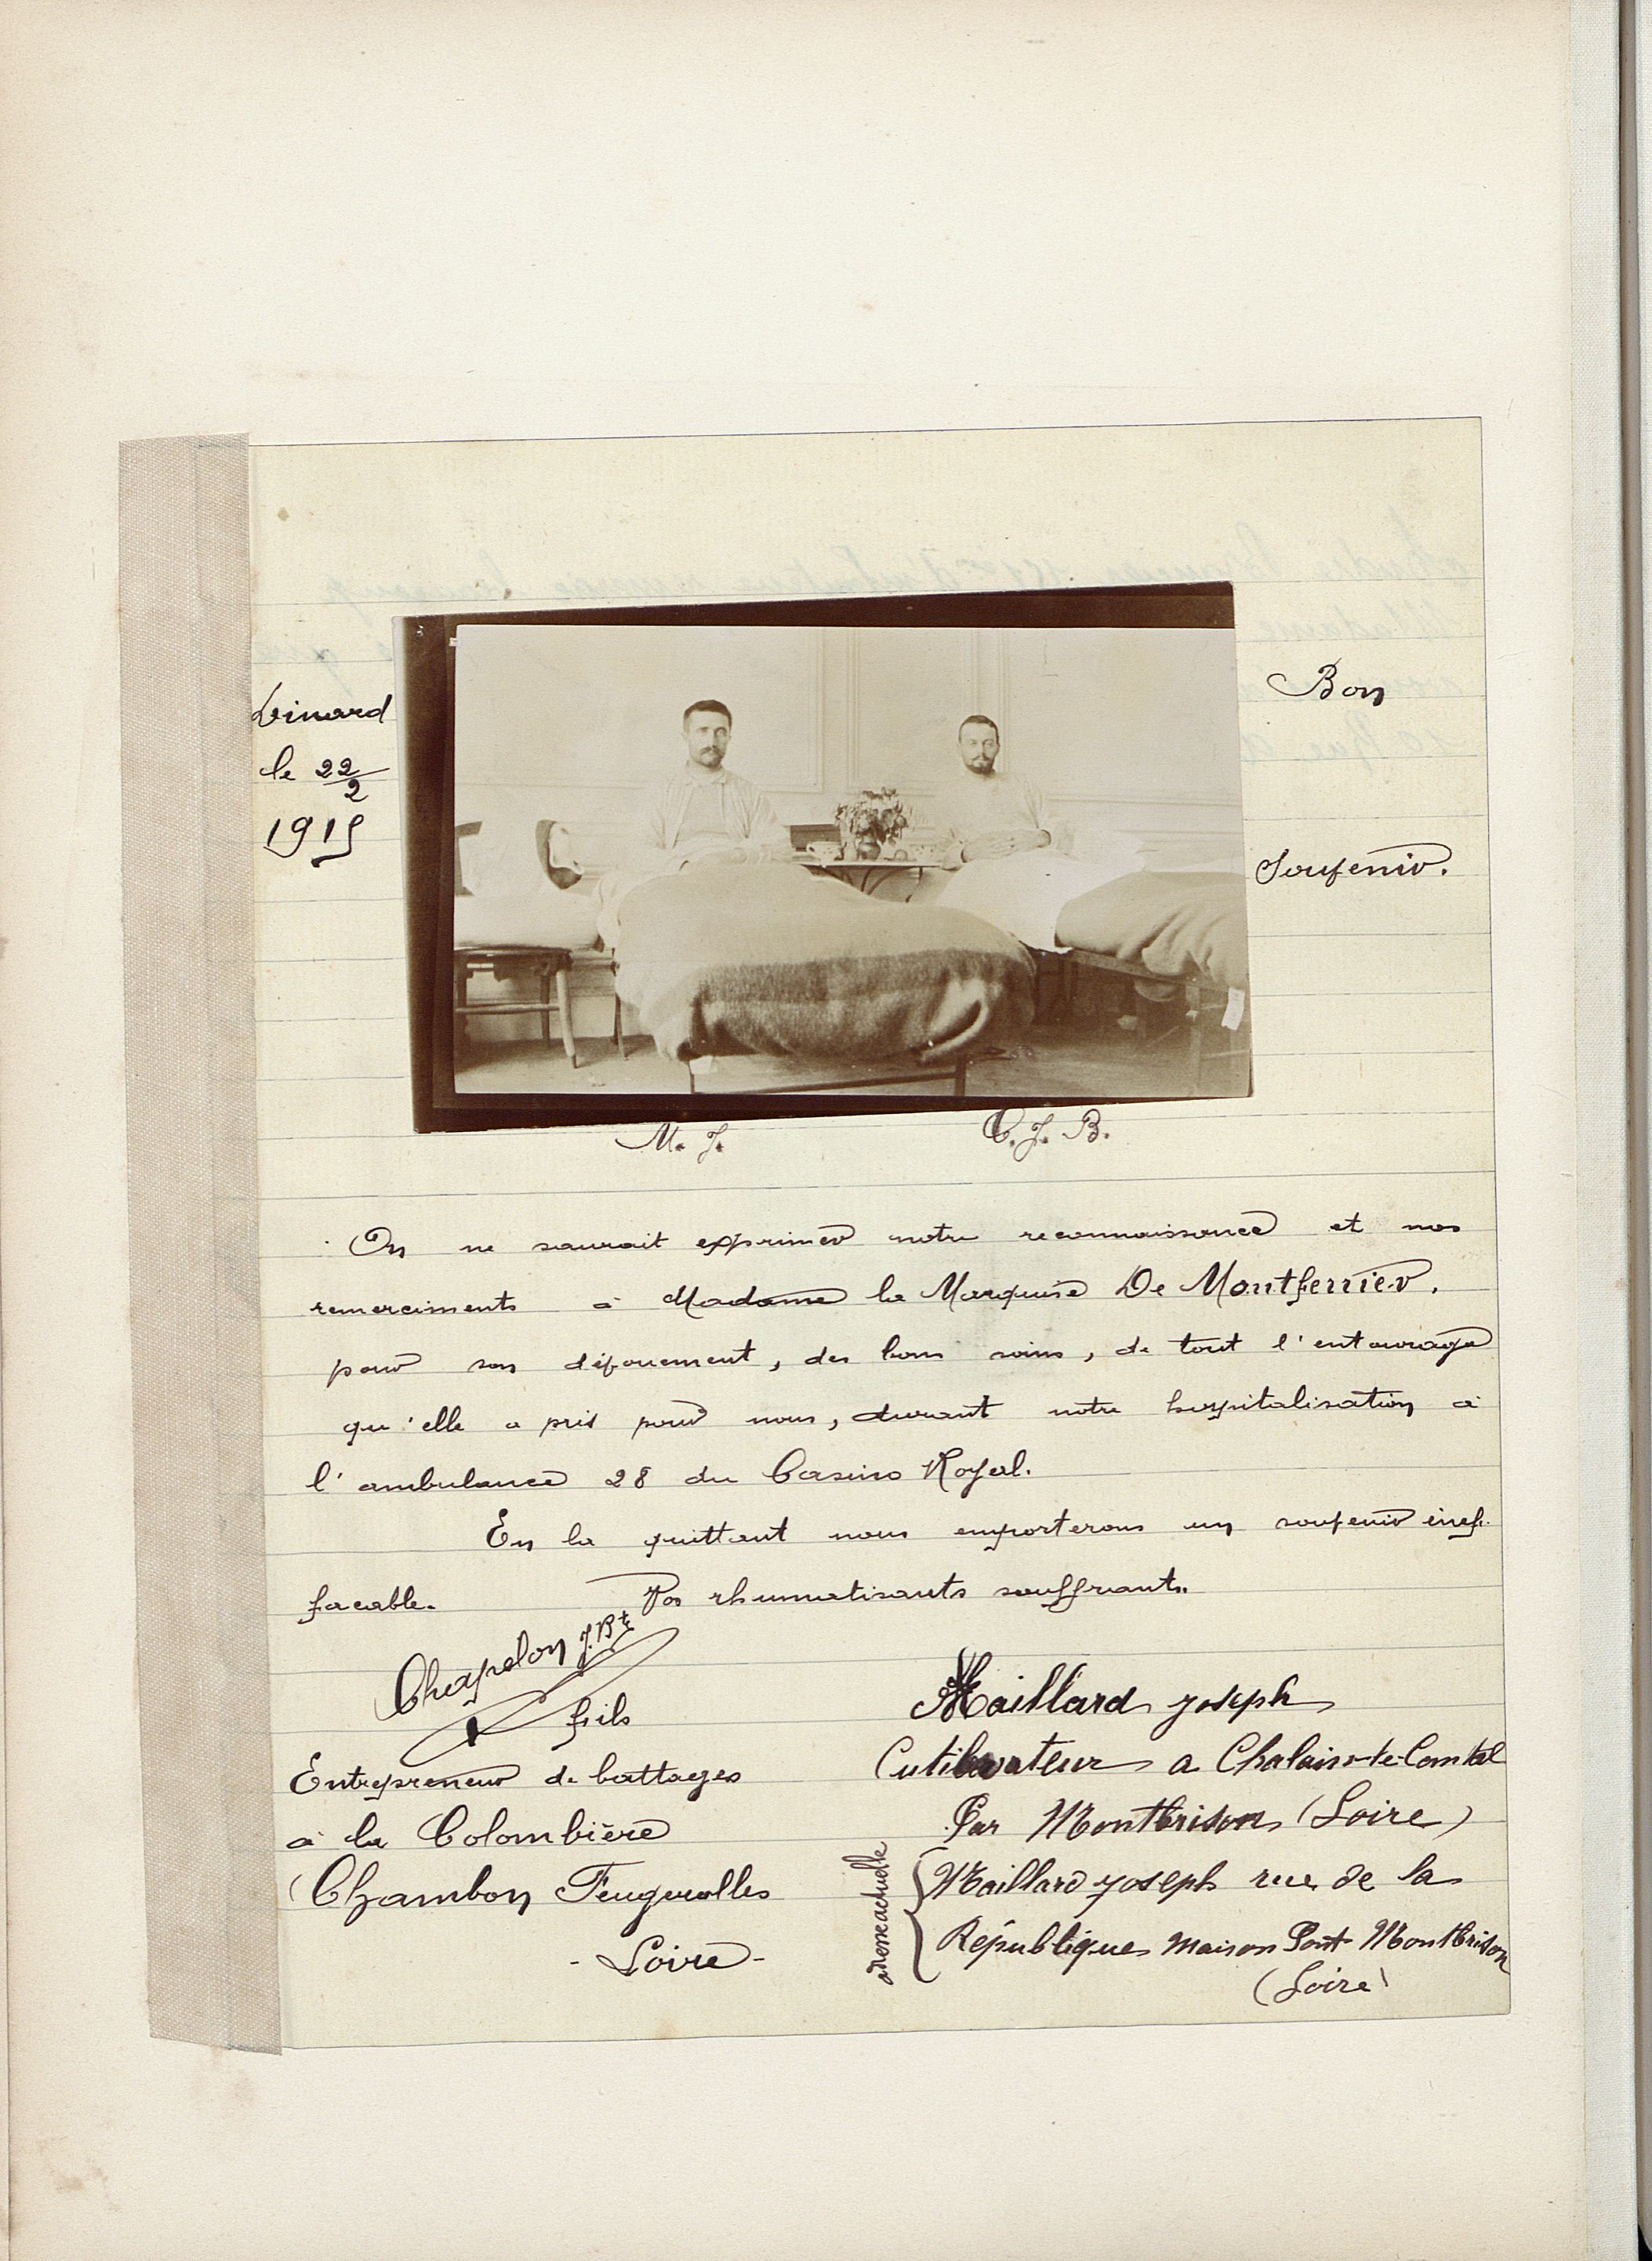 Dinard
le 22/2
1915
Bon
Souvenir.
M. J.
C. J. B.
On ne saurait exprimer notre reconnaissance et nos
remerciments à Madame la Marquise De Montferrier.
pour son dévouement, des bons soins, de tout l'entourage
qu'elle a pris pour nous, durant notre hospitalisation à
l'ambulance 28 du Casino Royal.
En la quittant nous emporterons un souvenir inef-
façable. Vos rhumatisants souffrants.
Chapelon J. Bte
fils
Entrepreneur de battages
à la Colombière
Chambon Feugerolles
- Loire -
Maillard joseph
Cutilvateur a Chalain-le-Comtal
Par Montbrison (Loire)
adresse actuelle
Maillard joseph rue de la
République maison Pont Montbrison
(Loire)